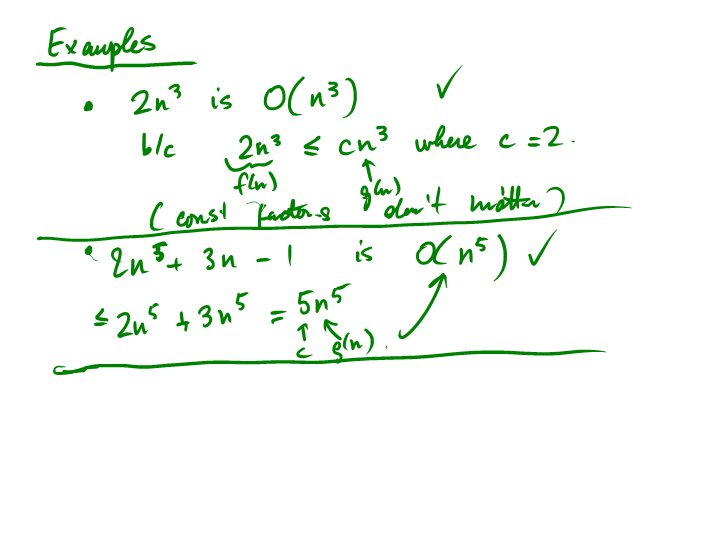 Examples
• 2n³ is O(n³) ✓
b/c 2n³ ≤ cn³ where c = 2.
f(n) g(n)
(const factors don't matter)
• 2n⁵ + 3n - 1 is O(n⁵) ✓
≤ 2n⁵ + 3n⁵ = 5n⁵
c g(n).